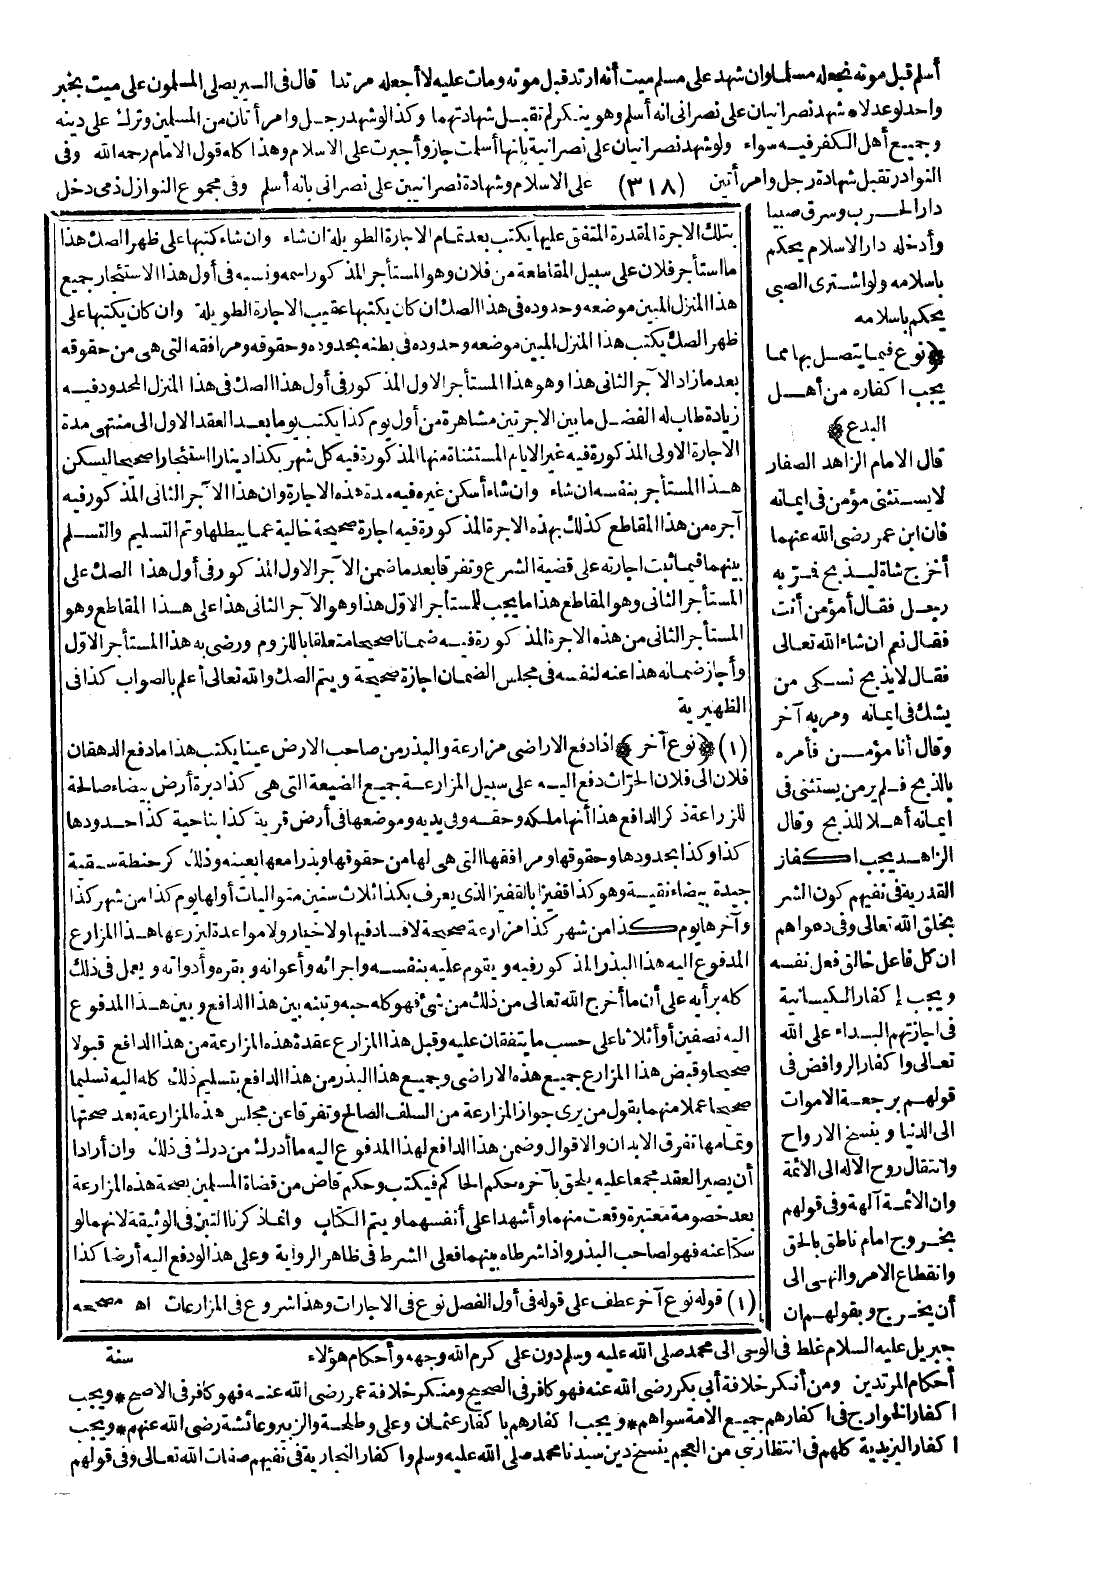 أسلم قبل موته نجعله مسلما وان شهد على مسلم ميت أنه ارتد قبل موته ومات عليه لا أجعله مرتدا قال فى السير يصلى المسلمون على ميت بخبر
واحد لو عدلا * شهد نصرانيان على نصرانى انه أسلم وهو ينكر لم تقبل شهادتهما وكذا لو شهد رجل وامرأتان من المسلمين وترك على دينه
وجميع أهل الكفر فيه سواء ولو شهد نصرانيان على نصرانية بانها أسلمت جاز وأجبرت على الاسلام وهذا كله قول الامام رحمه الله وفى
النوادر تقبل شهادة رجل وامرأتين (٣١٨) على الاسلام وشهادة نصرانيين على نصرانى بانه أسلم وفى مجموع النوازل ذمى دخل
دار الحرب وسرق صبيا
وأدخله دار الاسلام يحكم
باسلامه ولو اشترى الصبى
يحكم باسلامه
﴿نوع فيما يتصل بها مما
يجب اكفاره من أهل
البدع﴾
قال الامام الزاهد الصفار
لا يستثنى مؤمن فى ايمانه
فان ابن عمر رضى الله عنهما
أخرج شاة ليذبح فمرّ به
رجل فقال أمؤمن أنت
فقال نعم ان شاء الله تعالى
فقال لا يذبح نسكى من
يشك فى ايمانه ومر به آخر
وقال أنا مؤمن فأمره
بالذبح فلم ير من يستثنى فى
ايمانه أهلا للذبح وقال
الزاهد يجب اكفار
القدرية فى نفيهم كون الشر
بخلق الله تعالى وفى دعواهم
ان كل فاعل خالق فعل نفسه
ويجب إكفار الكيسانية
فى اجازتهم البداء على الله
تعالى واكفار الروافض فى
قولهم برجعة الاموات
الى الدنيا وبنسخ الارواح
وانتقال روح الاله الى الائمة
وان الائمة آلهة وفى قولهم
بخروج امام ناطق بالحق
وانقطاع الامر والنهى الى
أن يخرج وبقولهم ان
بتلك الاجرة المقدرة المتفق عليها يكتب بعد تمام الاجارة الطويلة ان شاء وان شاء كتبها على ظهر الصك هذا
ما استأجر فلان على سبيل المقاطعة من فلان وهو المستأجر المذكور اسمه ونسبه فى أول هذا الاستئجار جميع
هذا المنزل المبين موضعه وحدوده فى هذا الصك ان كان يكتبها عقيب الاجارة الطويلة وان كان يكتبها على
ظهر الصك يكتب هذا المنزل المبين موضعه وحدوده فى بطنه بحدوده وحقوقه ومرافقه التى هى من حقوقه
بعد ما زاد الآجر الثانى هذا وهو هذا المستأجر الاول المذكور فى أول هذا الصك فى هذا المنزل المحدود فيه
زيادة طاب له الفضل ما بين الاجرتين مشاهرة من أول يوم كذا يكتب يوما بعد العقد الاول الى منتهى مدة
الاجارة الاولى المذكورة فيه غير الايام المستثناة منها المذكورة فيه كل شهر بكذا دينارا استئجارا صحيحا ليسكن
هذا المستأجر بنفسه ان شاء وان شاء أسكن غيره فيه مدة هذه الاجارة وان هذا الآجر الثانى المذكور فيه
آجره من هذا المقاطع كذلك بهذه الاجرة المذكورة فيه اجارة صحيحة خالية عما يبطلها وتم التسليم والتسلم
بينهما فيما ثبت اجارته على قضية الشرع وتفرقا بعد ما ضمن الآجر الاول المذكور فى أول هذا الصك على
المستأجر الثانى وهو المقاطع هذا ما يجب للمستأجر الاوّل هذا وهو الآجر الثانى هذا على هذا المقاطع وهو
المستأجر الثانى من هذه الاجرة المذكورة فيه ضمانا صحيحا متعلقا باللزوم ورضى به هذا المستأجر الاوّل
وأجاز ضمانه هذا عنه لنفسه فى مجلس الضمان اجازة صحيحة ويتم الصك والله تعالى أعلم بالصواب كذا فى
الظهيرية
(١) ﴿نوع آخر﴾ اذا دفع الاراضى مزارعة والبذر من صاحب الارض عينا يكتب هذا ما دفع الدهقان
فلان الى فلان الحرّاث دفع اليه على سبيل المزارعة جميع الضيعة التى هى كذا دبرة أرض بيضاء صالحة
للزراعة ذكر الدافع هذا أنها ملكه وحقه وفى يديه وموضعها فى أرض قرية كذا بناحية كذا حدودها
كذا وكذا بحدودها وحقوقها ومرافقها التى هى لها من حقوقها وبذرا معها بعينه وذلك كر حنطة سقية
جيدة بيضاء نقية وهو كذا قفيزا بالقفيز الذى يعرف بكذا ثلاث سنين متواليات أولها يوم كذا من شهر كذا
وآخرها يوم كذا من شهر كذا مزارعة صحيحة لا فساد فيها ولا خيار ولا مواعدة ليزرعها هذا المزارع
المدفوع اليه هذا البذر المذكور فيه ويقوم عليه بنفسه واجرائه وأعوانه وبقره وأدواته ويعمل فى ذلك
كله برأيه على أن ما أخرج الله تعالى من ذلك من شئ فهو كله حبه وتبنه بين هذا الدافع وبين هذا المدفوع
اليه نصفين أو أثلاثا على حسب ما يتفقان عليه وقبل هذا المزارع عقدة هذه المزارعة من هذا الدافع قبولا
صحيحا وقبض هذا المزارع جميع هذه الاراضى وجميع هذا البذر من هذا الدافع بتسليم ذلك كله اليه تسليما
صحيحا عملا منهما بقول من يرى جواز المزارعة من السلف الصالح وتفرقا عن مجلس هذه المزارعة بعد صحتها
وتمامها تفرق الابدان والاقوال وضمن هذا الدافع لهذا المدفوع اليه ما أدرك من درك فى ذلك وان أرادا
أن يصير العقد مجمعا عليه يلحق بآخره حكم الحاكم فيكتب وحكم قاض من قضاة المسلمين بصحة هذه المزارعة
بعد خصومة معتبرة وقعت منهما وأشهدا على أنفسهما ويتم الكتاب وانما ذكرنا التبن فى الوثيقة لانهما لو
سكتا عنه فهو لصاحب البذر واذا شرطاه بينهما فعلى الشرط فى ظاهر الرواية وعلى هذا لو دفع اليه أرضا كذا
(١) قوله نوع آخر عطف على قوله فى أول الفصل نوع فى الاجارات وهذا شروع فى المزارعات اه مصححه
جبريل عليه السلام غلط فى الوحى الى محمد صلى الله عليه وسلم دون على كرم الله وجهه وأحكام هؤلاء سنة
أحكام المرتدين ومن أنكر خلافة أبى بكر رضى الله عنه فهو كافر فى الصحيح ومنكر خلافة عمر رضى الله عنه فهو كافر فى الاصح * ويجب
اكفار الخوارج فى اكفارهم جميع الامة سواهم * ويجب اكفارهم باكفار عثمان وعلى وطلحة والزبير وعائشة رضى الله عنهم * ويجب
اكفار اليزيدية كلهم فى انتظار نبى من العجم ينسخ دين سيدنا محمد صلى الله عليه وسلم واكفار النجارية فى نفيهم صفات الله تعالى وفى قولهم